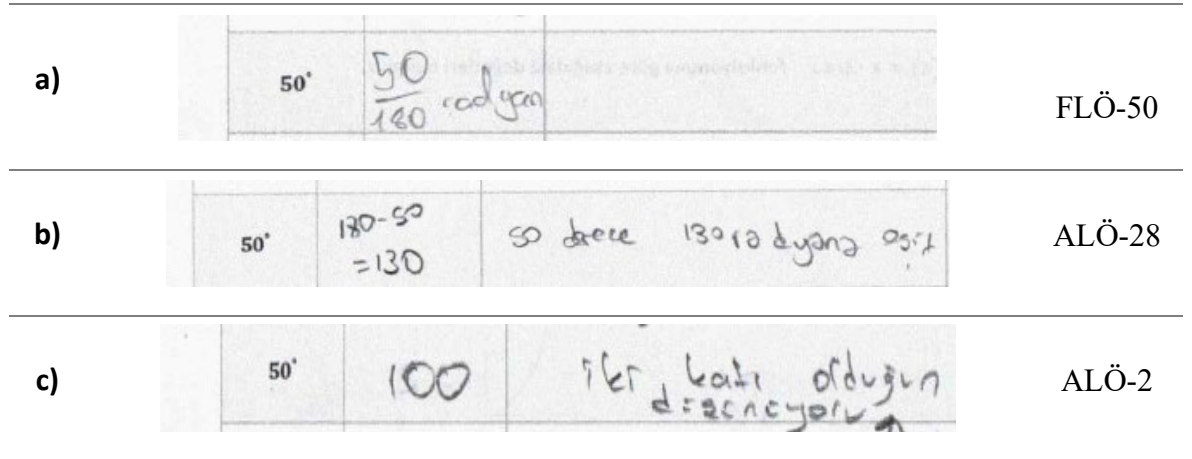 a)
50°
50
180 radyan
FLÖ-50
b)
50°
180-50
=130
50 derece 130 radyana eşit
ALÖ-28
c)
50°
100
iki katı olduğun
ALÖ-2